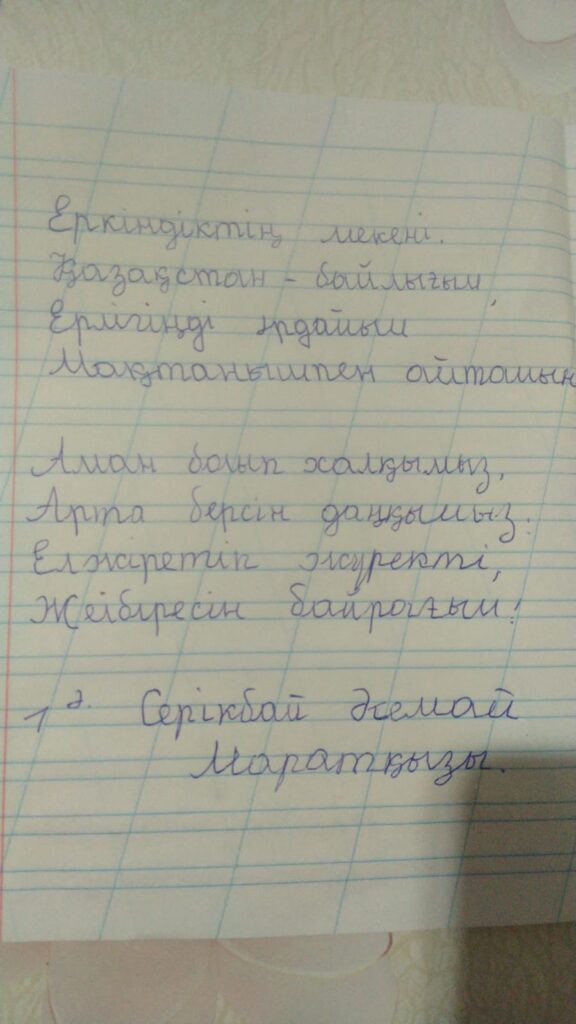 Еркіндіктің мекені.
Қазақстан - байлығым,
Ерлігіңді әрдайым
Мақтанышпен айтамын
Аман болып халқымыз,
Арта берсін даңқымыз.
Елжіретіп жүректі,
Желбіресін байрағым!
1 ә. Серікбай Жемай
Маратқызы.